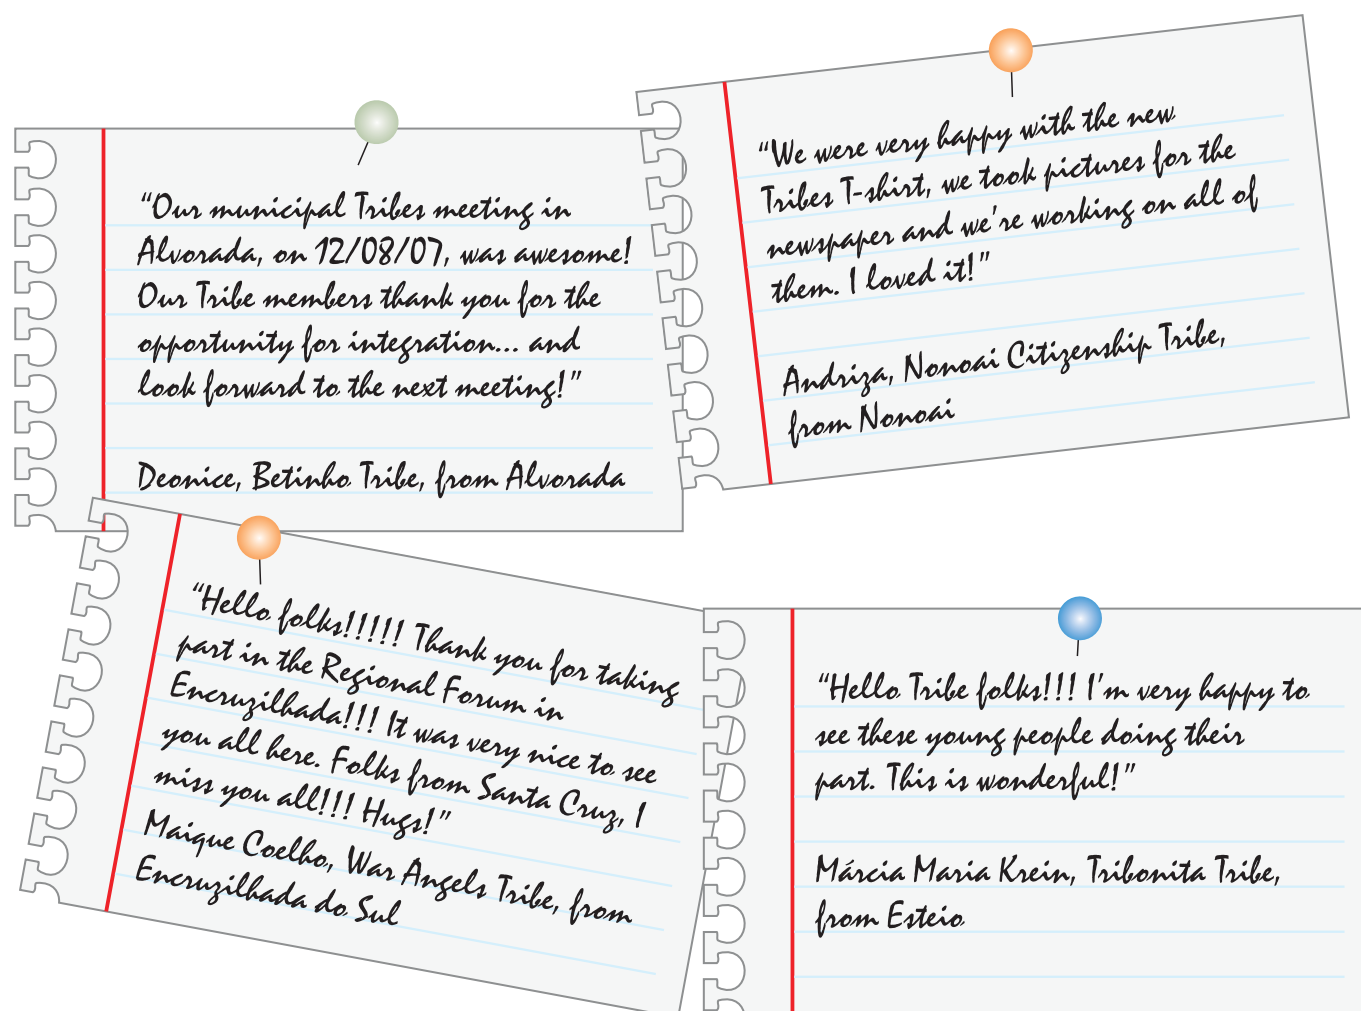 “Our municipal Tribes meeting in
Alvorada, on 12/08/07, was awesome!
Our Tribe members thank you for the
opportunity for integration... and
look forward to the next meeting!”
Deonice, Betinho Tribe, from Alvorada
“We were very happy with the new
Tribes T-shirt, we took pictures for the
newspaper and we’re working on all of
them. I loved it!”
Andriza, Nonoai Citizenship Tribe,
from Nonoai
“Hello folks!!!!! Thank you for taking
part in the Regional Forum in
Encruzilhada!!! It was very nice to see
you all here. Folks from Santa Cruz, I
miss you all!!! Hugs!”
Maique Coelho, War Angels Tribe, from
Encruzilhada do Sul
“Hello Tribe folks!!! I’m very happy to
see these young people doing their
part. This is wonderful!”
Márcia Maria Krein, Tribonita Tribe,
from Esteio